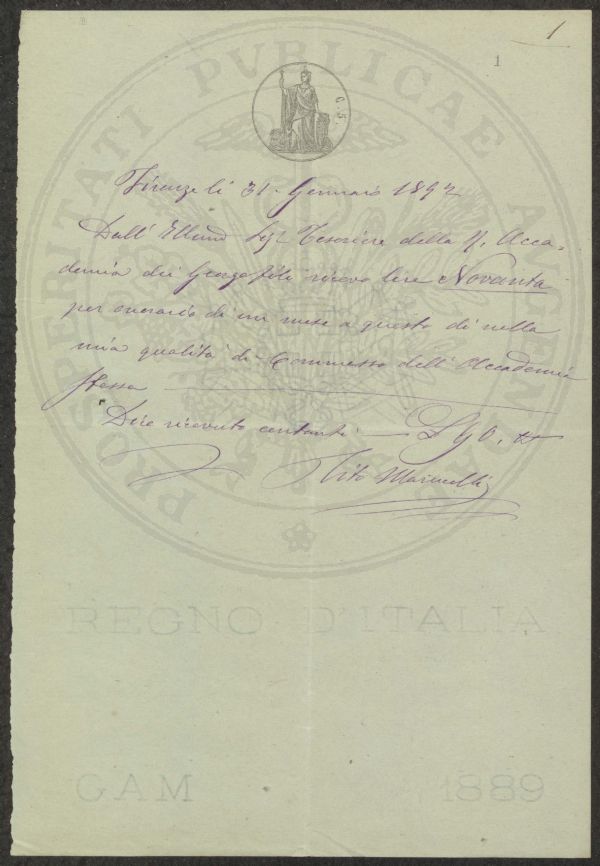 1
1
PROSPERITATI PVBLICAE AVGENDAE
C. 5.
Firenze li 31. Gennaio 1892
Dall' Illmo Sigr Tesoriere della R. Acca-
demia dei Georgofili ricevo lire Novanta
per onorario di un mese a questo dì nella
mia qualità di Commesso dell' Accademia
stessa
Dico ricevuto contanti — L 90, "
Tito Marucelli
REGNO D'ITALIA
GAM 1889